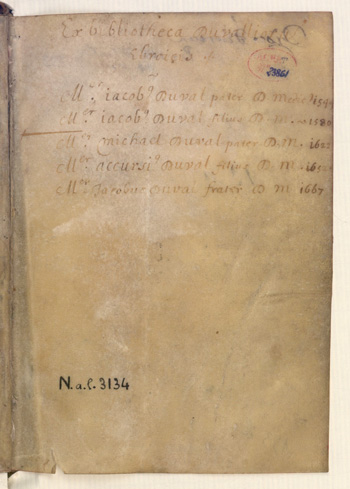 Ex bibliotheca Duvallii
Ebroicis
Mr. iacobo Duval pater D. Mede 154
Mr. iacobo Duval filius D. M. 1580
Mr. michael Duval pater D. M. 162
Mr. accursio Duval filius D. M. 16
Mr. Jacobus Duval frater D M 1687
N.a.l. 3134